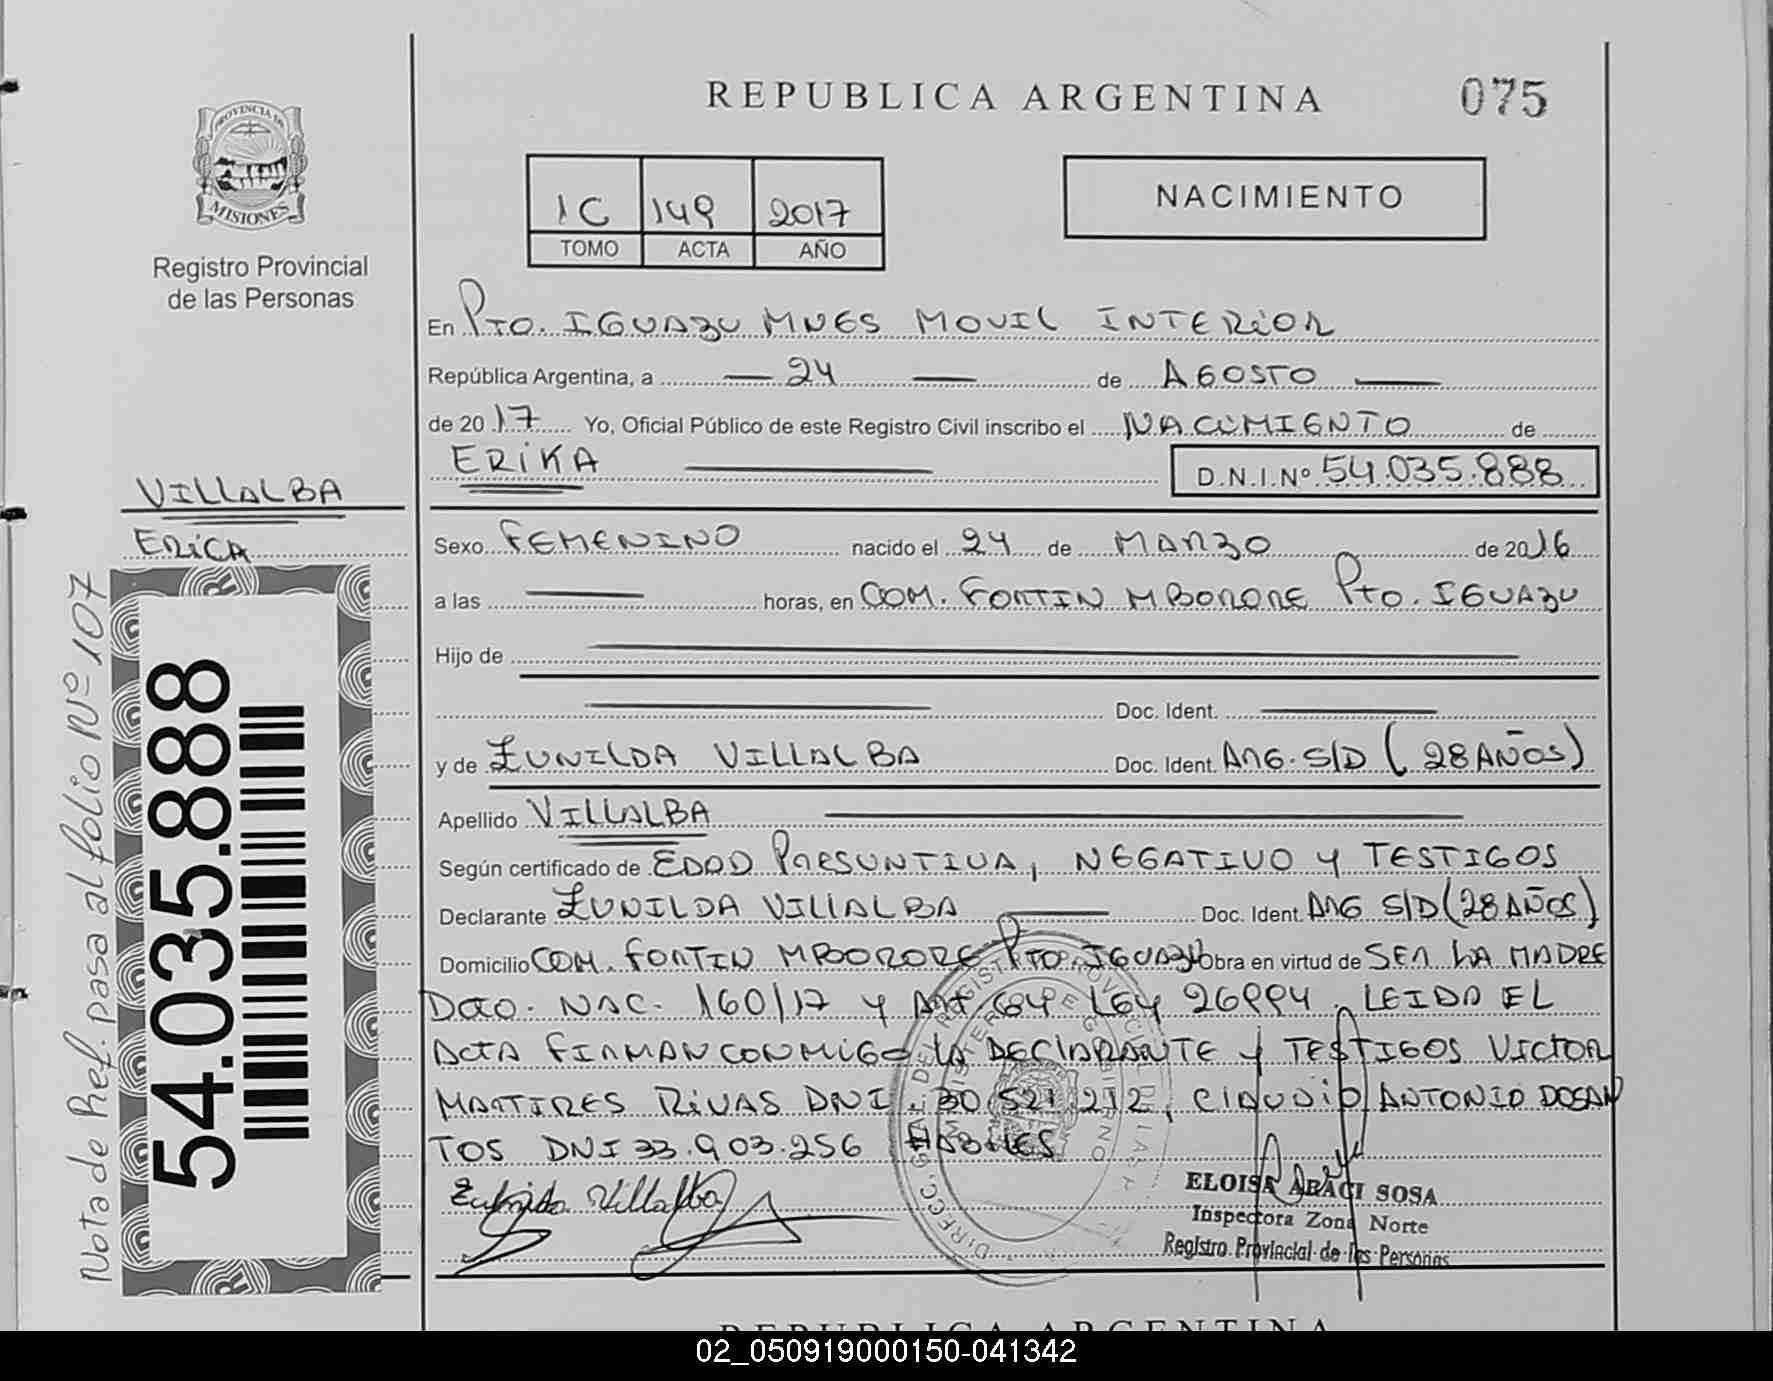 REPUBLICA ARGENTINA
075
PROVINCIA DE
MISIONES
Registro Provincial
de las Personas
1C 149 2017
TOMO ACTA AÑO
NACIMIENTO
En Pto. IGUAZU MNES MOVIL INTERIOR
República Argentina, a — 24 — de AGOSTO —
de 2017 Yo, Oficial Público de este Registro Civil inscribo el NACIMIENTO de
ERIKA — D.N.I.Nº 54.035.888
VILLALBA
ERICA
Sexo FEMENINO nacido el 24 de MARZO de 2016
a las — horas, en COM. FORTIN MBORORE Pto. IGUAZU
Hijo de —
— Doc. Ident. —
y de ZUNILDA VILLALBA Doc. Ident. ARG. S/D (28 AÑOS)
Apellido VILLALBA —
Según certificado de EDAD PRESUNTIVA, NEGATIVO Y TESTIGOS
Declarante ZUNILDA VILLALBA — Doc. Ident. ARG S/D (28 AÑOS)
Domicilio COM. FORTIN MBORORE Pto. IGUAZU Obra en virtud de SER LA MADRE
DCTO. NAC. 160/17 Y ART. 64 LEY 26994. LEIDA EL
ACTA FIRMAN CONMIGO LA DECLARANTE Y TESTIGOS VICTOR
MARTIRES RIVAS DNI 30.521.212, CLAUDIO ANTONIO DOSAN
TOS DNI 33.903.256 HABILES
Zunilda Villalba
ELOISA ARACI SOSA
Inspectora Zona Norte
Registro Provincial de las Personas
Nota de Ref. pasa al folio Nº 107
54.035.888
REPUBLICA ARGENTINA
02_050919000150-041342